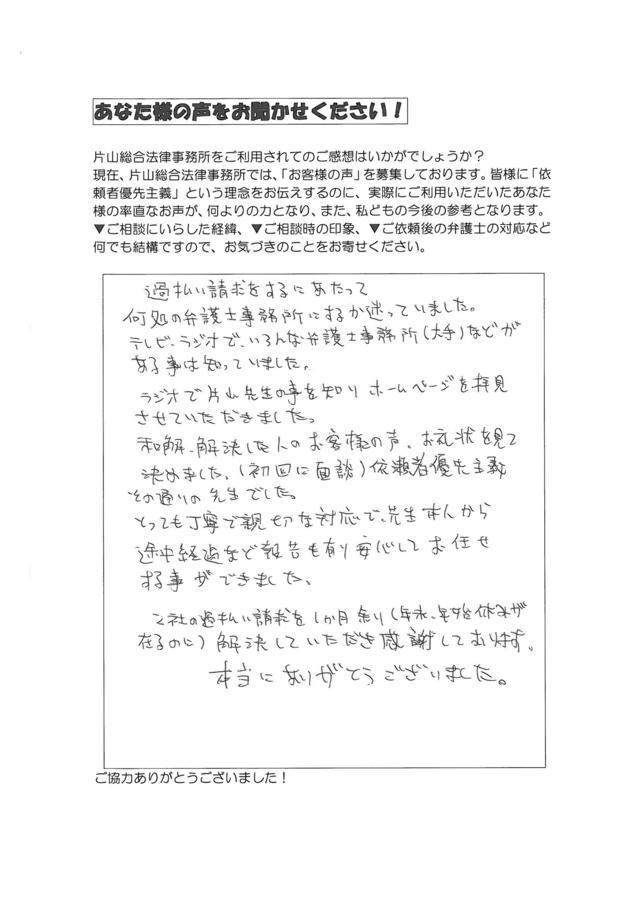 あなた様の声をお聞かせください！
片山総合法律事務所をご利用されてのご感想はいかがでしょうか？
現在、片山総合法律事務所では、「お客様の声」を募集しております。皆様に「依
頼者優先主義」という理念をお伝えするのに、実際にご利用いただいたあなた
様の率直なお声が、何よりの力となり、また、私どもの今後の参考となります。
▼ご相談にいらした経緯、▼ご相談時の印象、▼ご依頼後の弁護士の対応など
何でも結構ですので、お気づきのことをお寄せください。
過払い請求をするにあたって
何処の弁護士事務所にするか迷っていました。
テレビ、ラジオで、いろんな弁護士事務所(大手)などが
ある事は知っていました。
ラジオで片山先生の事を知り ホームページを拝見
させていただきました。
和解、解決した人のお客様の声、お礼状を見て
決めました。(初回に面談)依頼者優先主義
その通りの先生でした。
とっても丁寧で親切な対応で、先生本人から
途中経過など報告も有り安心してお任せ
する事ができました。
2社の過払い請求を1か月余り(年末、年始休みが
在るのに)解決していただき感謝しております。
本当にありがとうございました。
ご協力ありがとうございました！